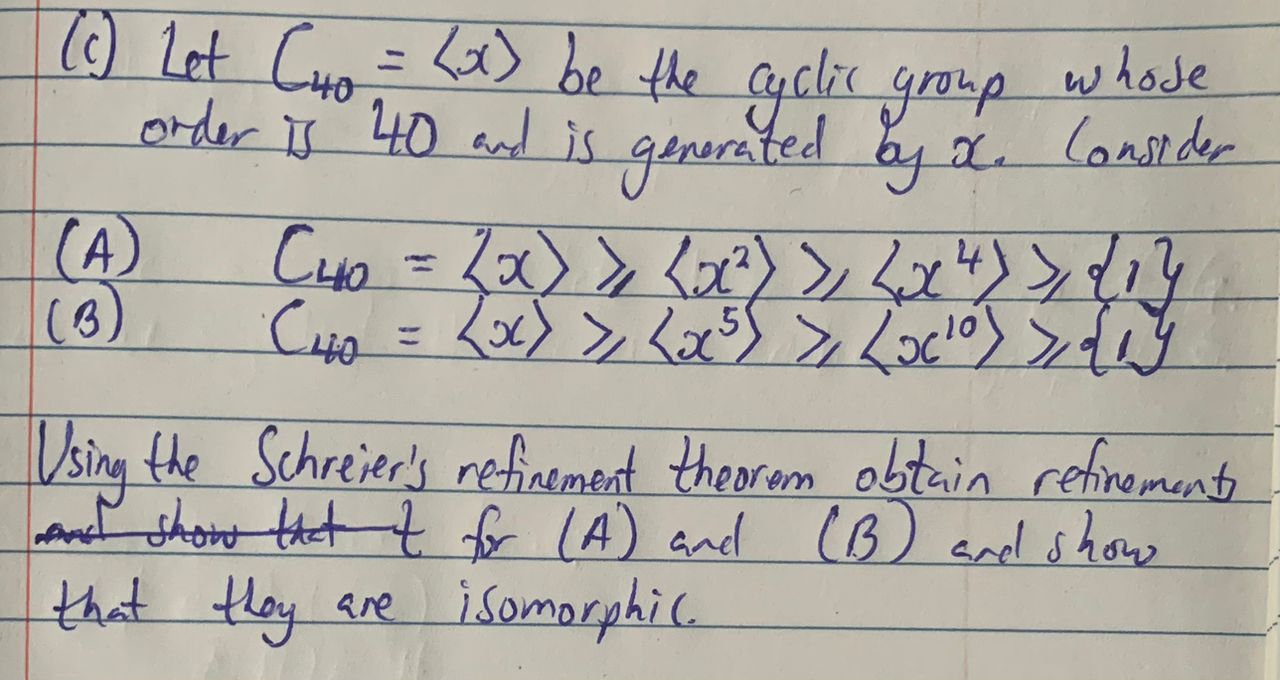 (c) Let C₄₀ = ⟨x⟩ be the cyclic group whose
order is 40 and is generated by x. Consider
(A) C₄₀ = ⟨x⟩ ⩾ ⟨x²⟩ ⩾ ⟨x⁴⟩ ⩾ {1}
(B) C₄₀ = ⟨x⟩ ⩾ ⟨x⁵⟩ ⩾ ⟨x¹⁰⟩ ⩾ {1}
Using the Schreier's refinement theorem obtain refinements
and show that t for (A) and (B) and show
that they are isomorphic.